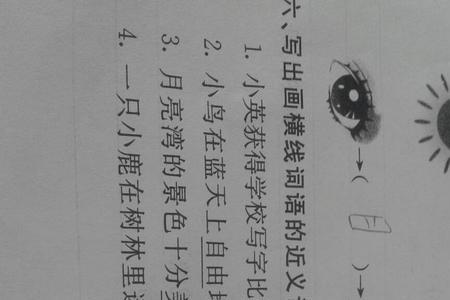 →( 目 )→
六、写出画横线词语的近义
1. 小英获得学校写字比
2. 小鸟在蓝天上自由
3. 月亮湾的景色十分
4. 一只小鹿在树林里